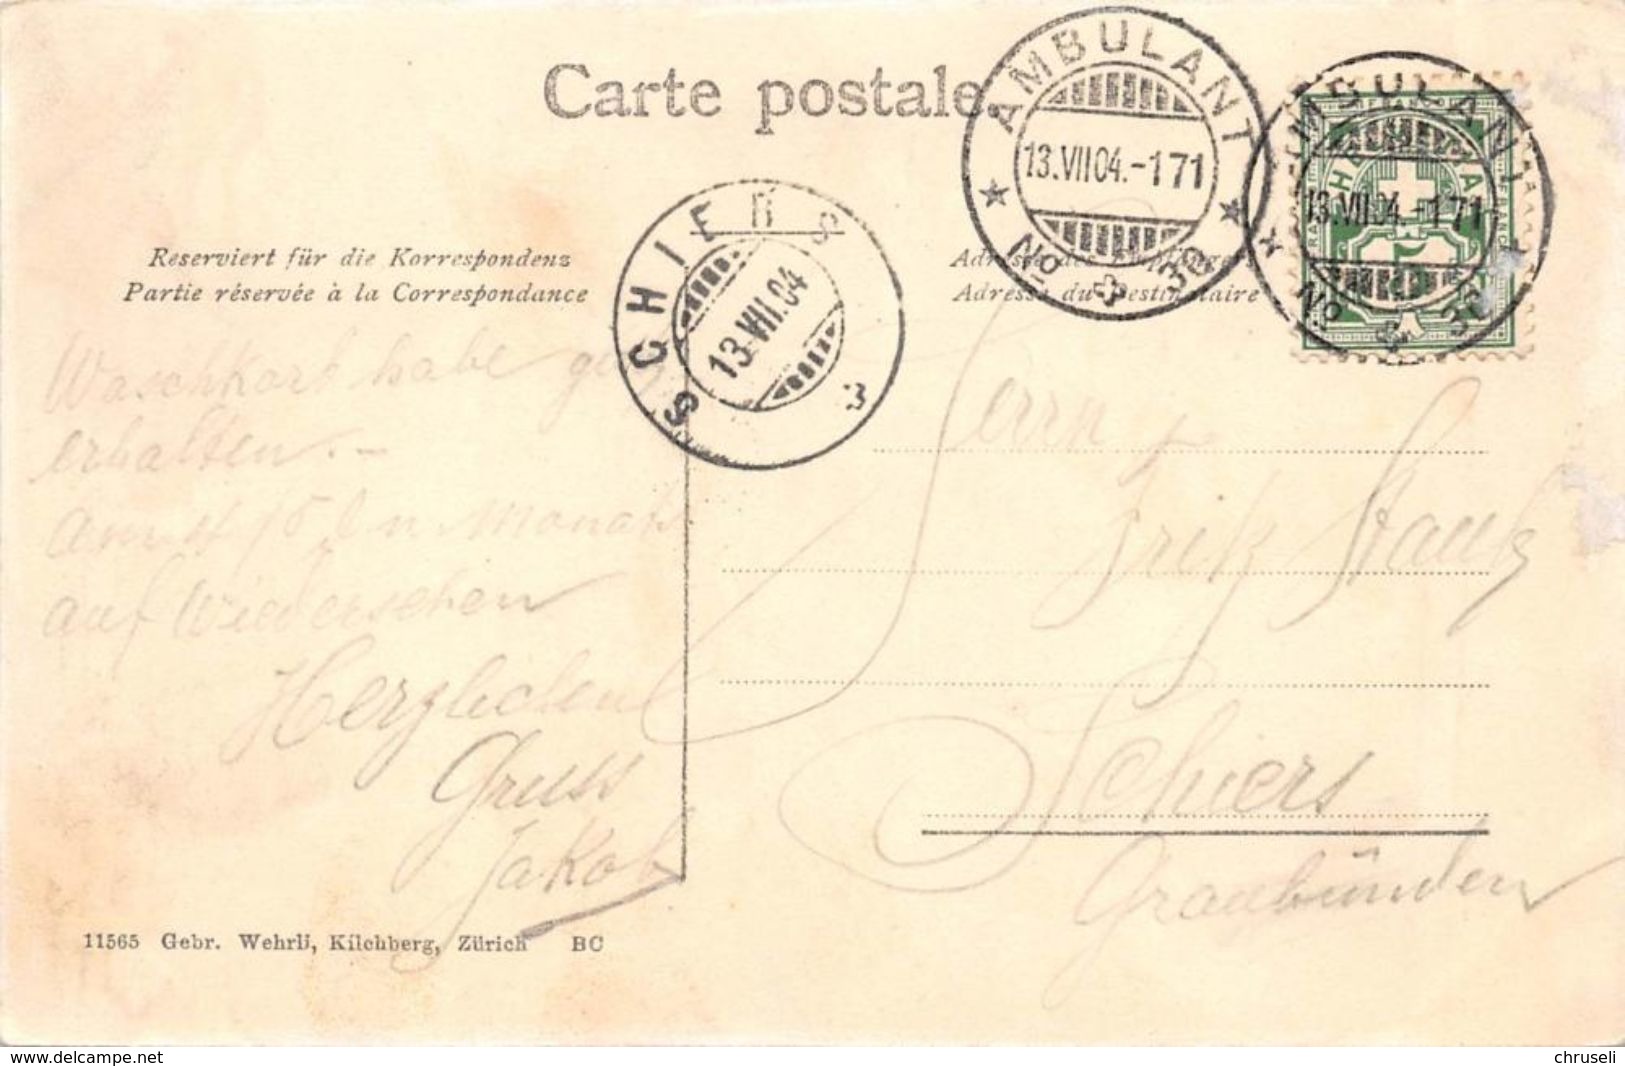 Carte postale.
AMBULANT
13.VII.04.-171
No 30
AMBULANT
13.VII.04.-171
No 30
HELVETIA
SCHIERS
13.VII.04
Reserviert für die Korrespondenz
Partie réservée à la Correspondance
Adresse des Empfängers
Adresse du Destinataire
Waschkorb habe
erhalten. -
Monats
auf Wiedersehen
Herzlichen
Gruss
Jakob
Herrn
Fritz Staub
Schiers
Graubünden
11565 Gebr. Wehrli, Kilchberg, Zürich BC
www.delcampe.net
chruseli